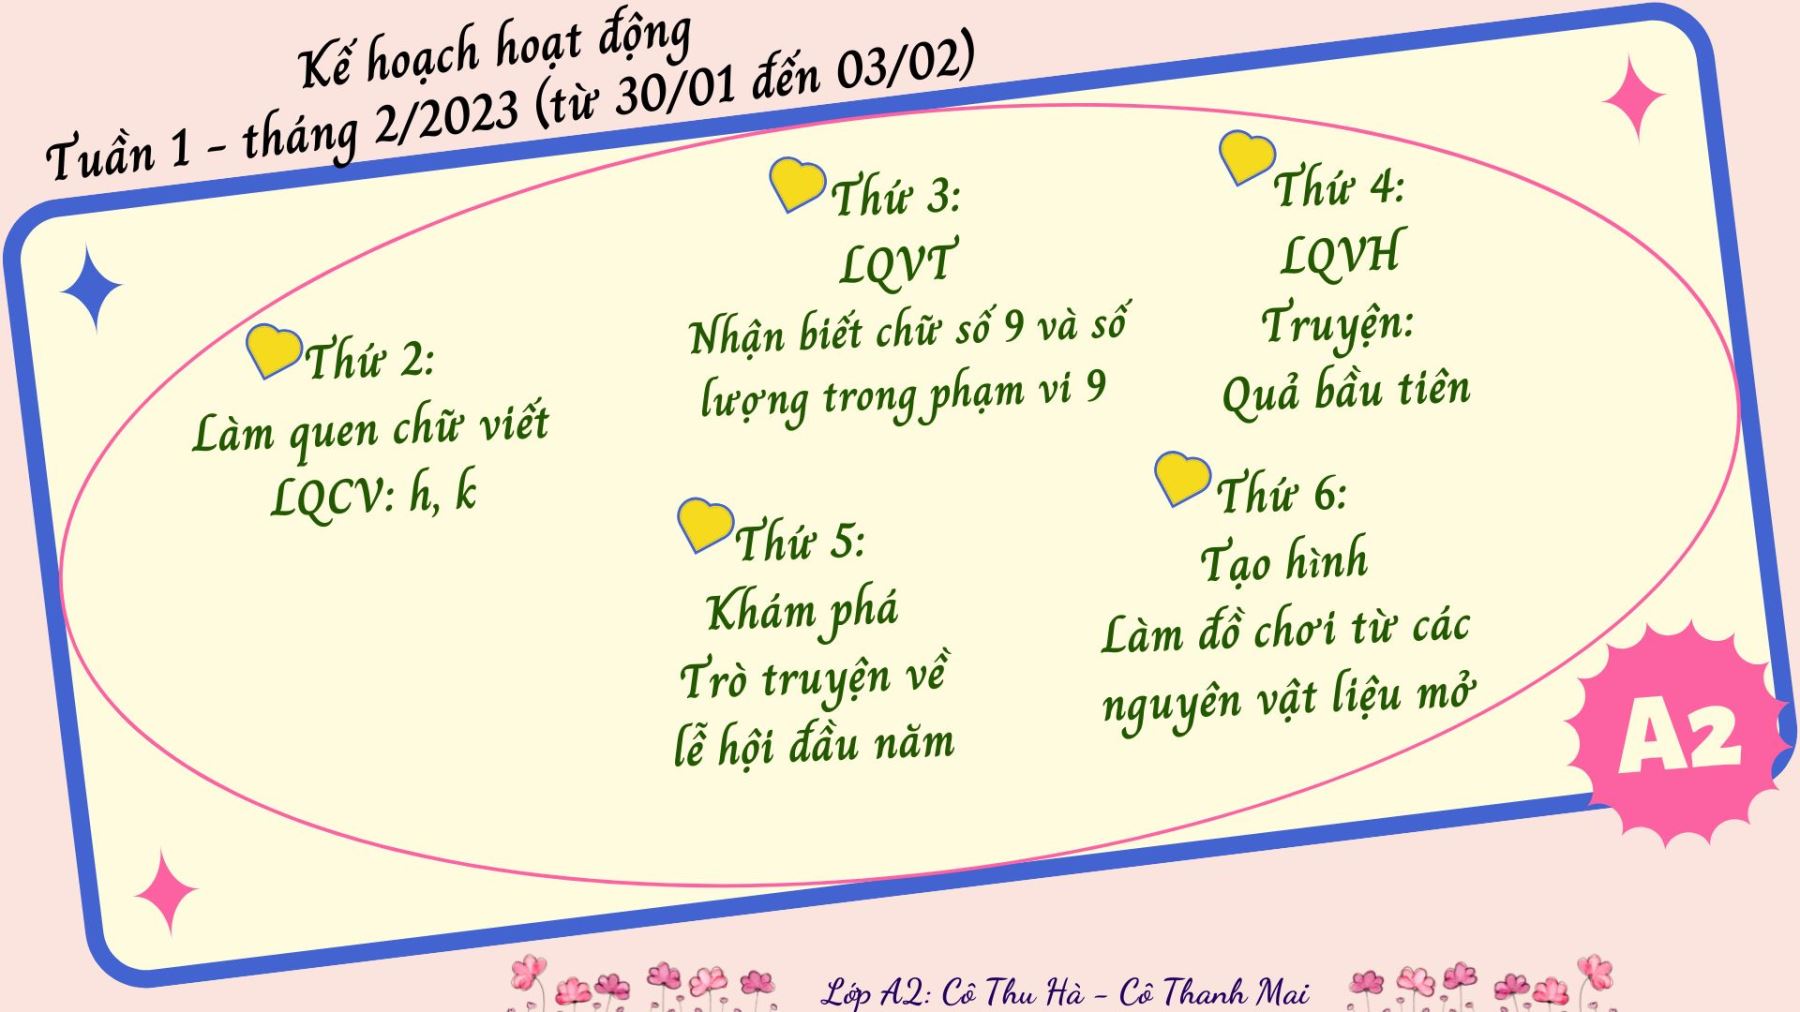 Kế hoạch hoạt động
Tuần 1 - tháng 2/2023 (từ 30/01 đến 03/02)
Thứ 2:
Làm quen chữ viết
LQCV: h, k
Thứ 3:
LQVT
Nhận biết chữ số 9 và số
lượng trong phạm vi 9
Thứ 4:
LQVH
Truyện:
Quả bầu tiên
Thứ 5:
Khám phá
Trò truyện về
lễ hội đầu năm
Thứ 6:
Tạo hình
Làm đồ chơi từ các
nguyên vật liệu mở
A2
Lớp A2: Cô Thu Hà - Cô Thanh Mai